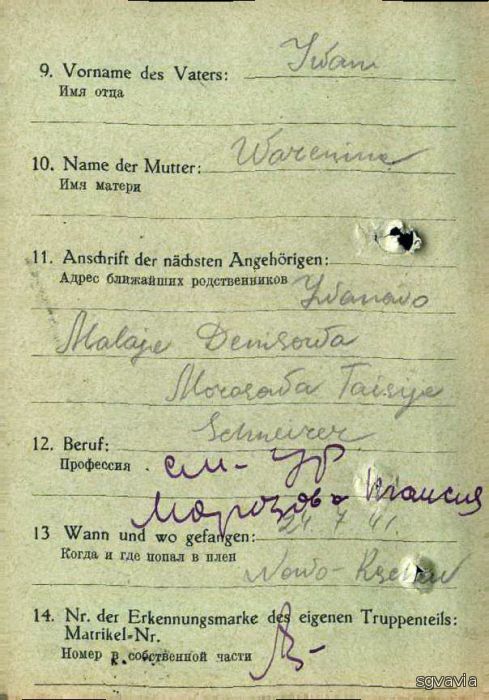 9. Vorname des Vaters: Iwan
Имя отца
10. Name der Mutter: Warenina
Имя матери
11. Anschrift der nächsten Angehörigen:
Адрес ближайших родственников Iwanowo
Malaje Denisowa
Morosowa Taisije
12. Beruf:
Профессия
Морозова
13 Wann und wo gefangen: 24.7.41.
Когда и где попал в плен
Nowo-
14. Nr. der Erkennungsmarke des eigenen Truppenteils:
Matrikel-Nr.
Номер в собственной части
sgvavia